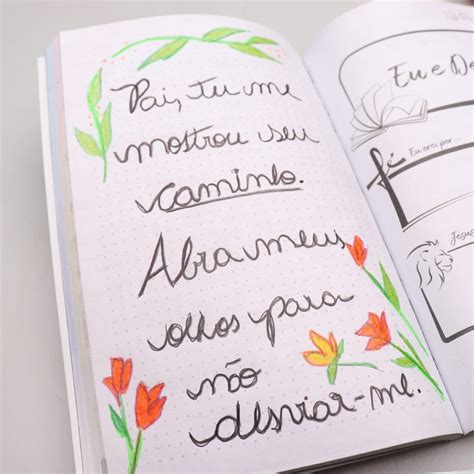 Pai, tu me
mostrou seu
caminho.
Abra meus
olhos para
não
desviar-me.
Eu e De
fé
Eu orei por...
Jesus